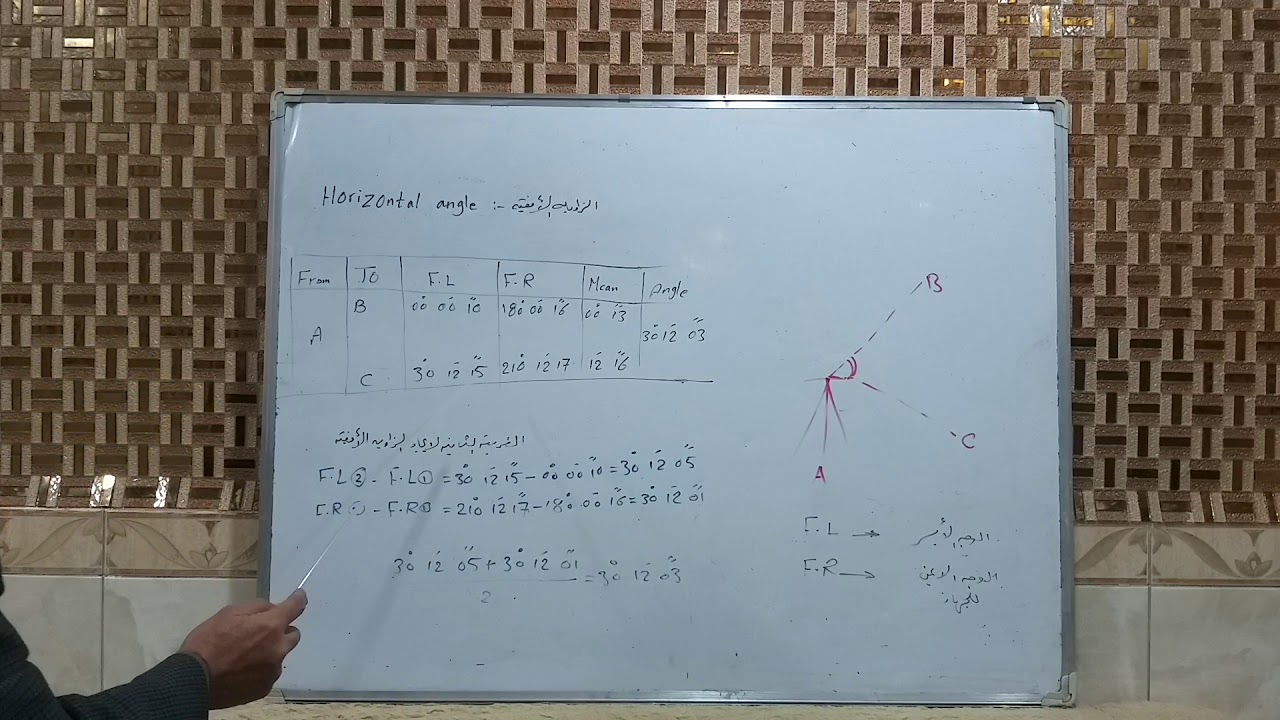 Horizontal angle :- الزاوية الأفقية
From TO F.L F.R Mean Angle
B 00° 00' 10" 180° 00' 16" 00' 13"
A 30° 12' 03"
C 30° 12' 15" 210° 12' 17" 12' 16"
الطريقة الثانية لايجاد الزاوية الأفقية
F.L② - F.L① = 30° 12' 15" - 00° 00' 10" = 30° 12' 05"
F.R - F.R① = 210° 12' 17" - 180° 00' 16" = 30° 12' 01"
30° 12' 05" + 30° 12' 01" / 2 = 30° 12' 03"
B
C
A
F.L → الوجه الأيسر
F.R → الوجه الايمن
للجهاز